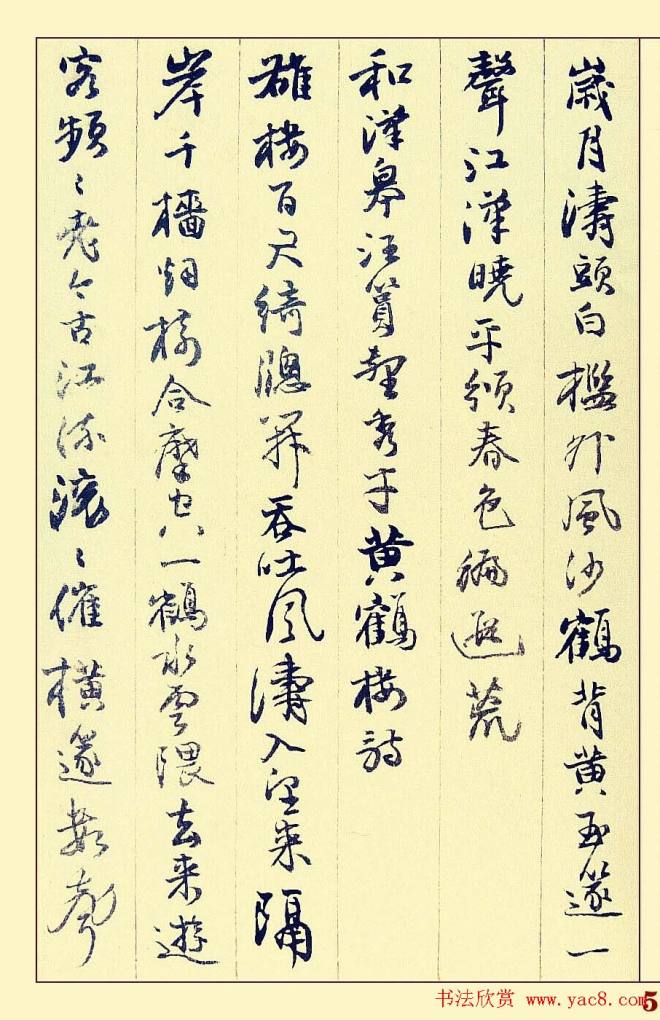 歲月濤頭白檻外風沙鶴背黃玉篴一
聲江漢曉平領春色徧遐荒
和漢皋汪篔墅秀才黃鶴樓詩
雄樓百尺綺牕開吞吐風濤入望來隔
岸千檣烟樹合摩空一鶴水雲隈去來遊
客頻〻老今古江流滾〻催橫篴數聲
书法欣赏 www.yac8.com 5